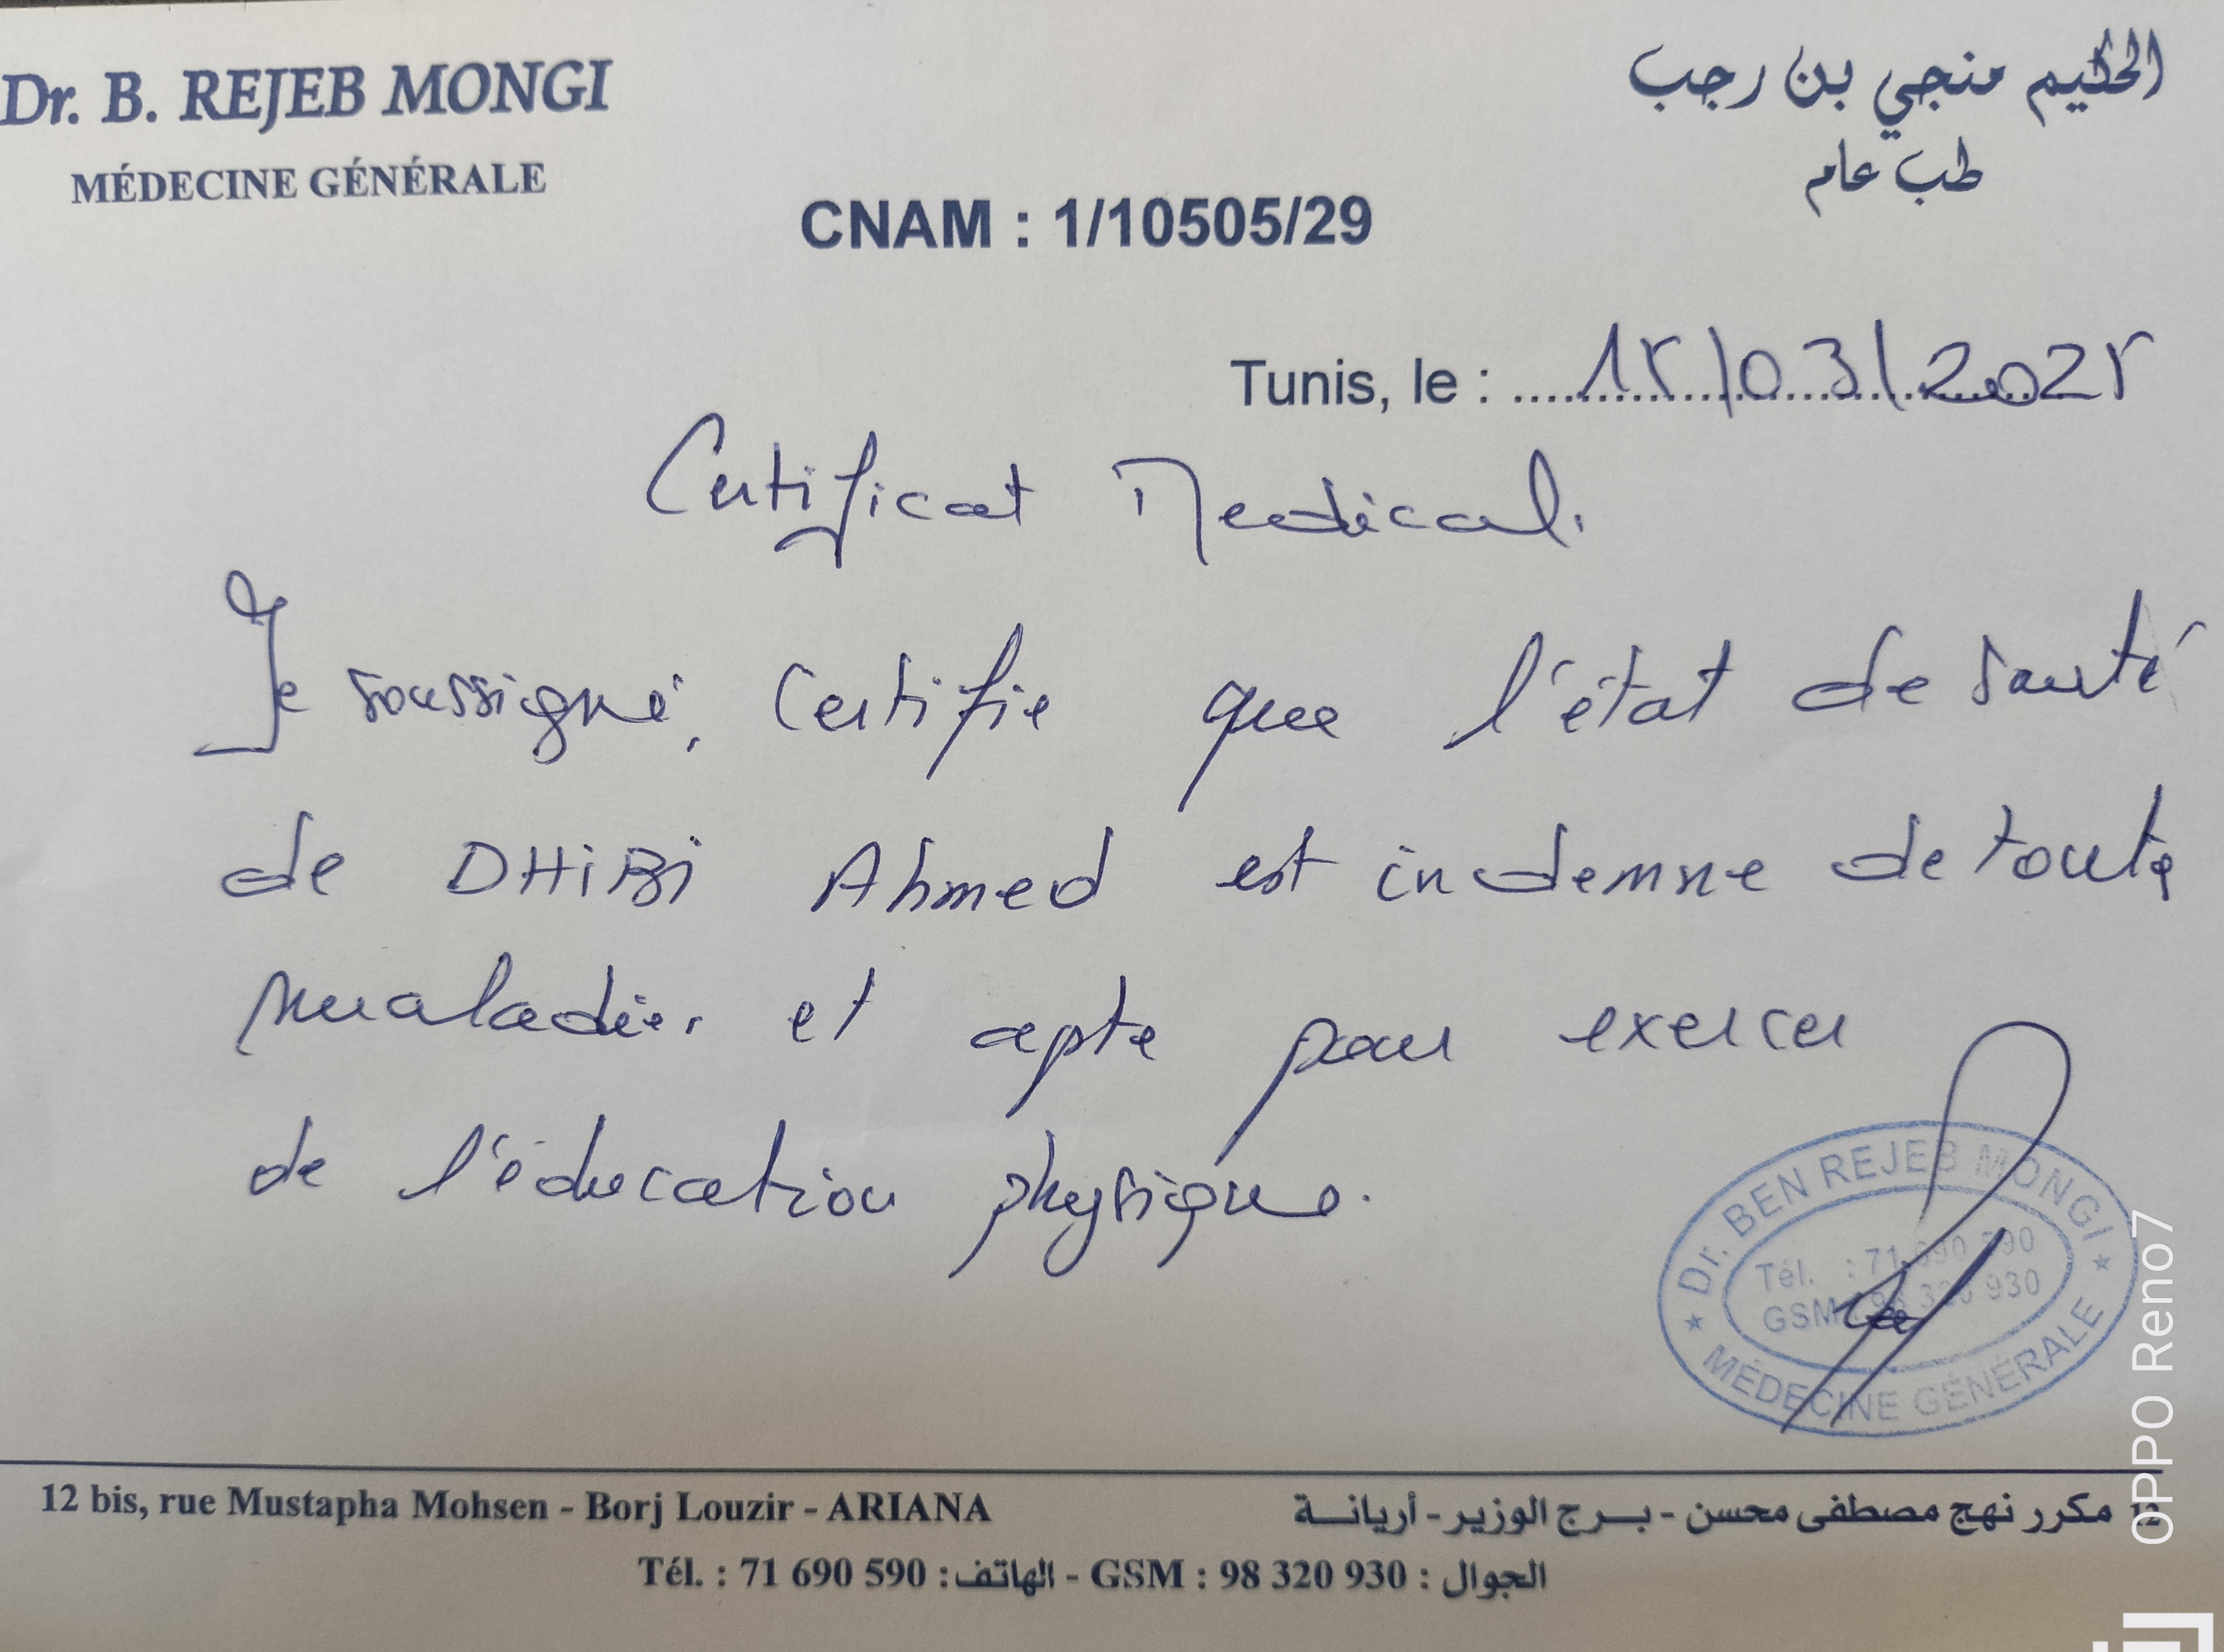 Dr. B. REJEB MONGI
MÉDECINE GÉNÉRALE
الحكيم منجي بن رجب
طب عام
CNAM : 1/10505/29
Tunis, le : 15/03/2025
Certificat Medical.
Je soussigné, certifie que l'état de santé
de DHiBi Ahmed est indemne de toute
maladie et apte pour exercer
de l'éducation physique.
Dr. BEN REJEB MONGI
Tél. : 71 690 590
GSM : 98 320 930
MÉDECINE GÉNÉRALE
12 bis, rue Mustapha Mohsen - Borj Louzir - ARIANA
12 مكرر نهج مصطفى محسن - بـرج الوزير - أريانـة
Tél. : 71 690 590 : الهاتف - GSM : 98 320 930 : الجوال
OPPO Reno7